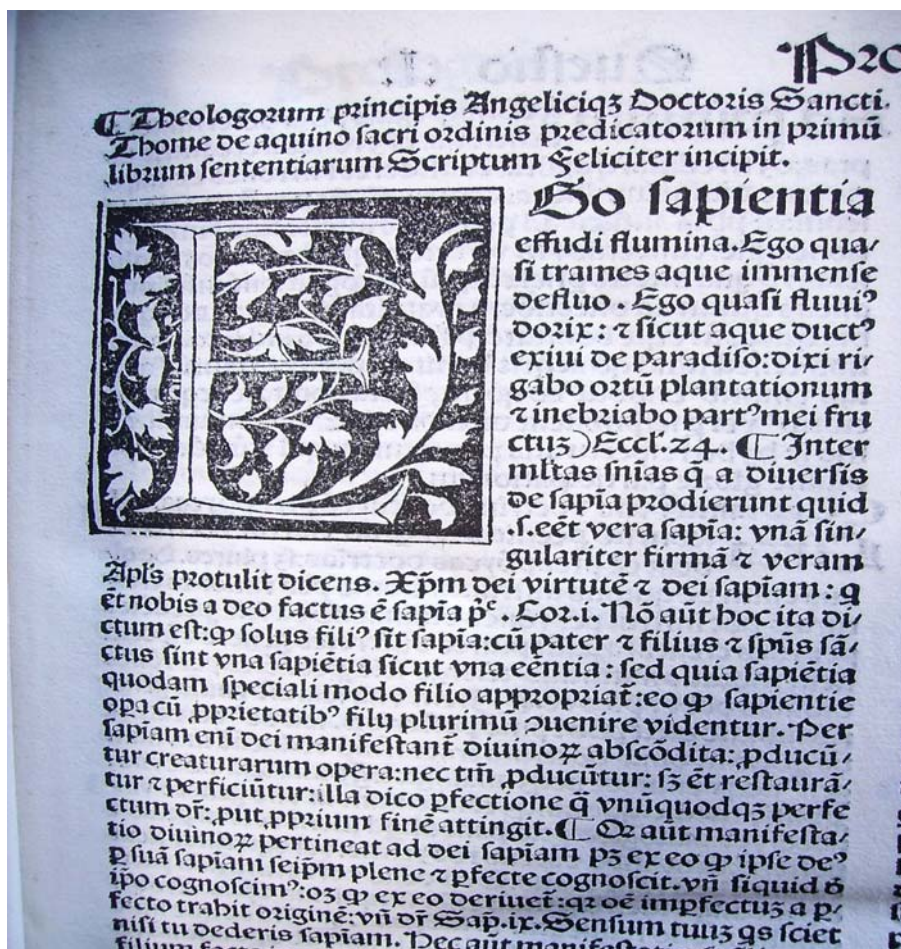 Pro
¶ Theologorum principis Angeliciqꝫ Doctoris Sancti
Thome de aquino sacri ordinis predicatorum in primū
librum sententiarum Scriptum Feliciter incipit.
EGo sapientia
effudi flumina. Ego qua/
si trames aque immense
defluo. Ego quasi fluuiꝰ
dorix: ⁊ sicut aque ductꝰ
exiui de paradiso: dixi ri/
gabo ortū plantationum
⁊ inebriabo partꝰ mei fru
ctuꝫ) Eccl. 24. ¶ Inter
ml̄tas sn̄ias q̄ a diuersis
de sapīa prodierunt quid
.s. eēt vera sapīa: vnā sin/
gulariter firmā ⁊ veram
Apl̄s protulit dicens. Xp̄m dei virtutē ⁊ dei sapīam: q
ēt nobis a deo factus ē sapīa pͤ. Cor. i. Nō aūt hoc ita di/
ctum est: ꝙ solus filiꝰ sit sapīa: cū pater ⁊ filius ⁊ spūs sā/
ctus sint vna sapiētia sicut vna eēntia: sed quia sapiētia
quodam speciali modo filio appropriat̄: eo ꝙ sapientie
oꝑa cū ꝓprietatibꝰ filij plurimū ꝯuenire videntur. Per
sapīam enī dei manifestant̄ diuinoꝝ abscōdita: ꝓducū/
tur creaturarum opera: nec tm̄ ꝓducūtur: sꝫ ēt restaurā/
tur ⁊ perficiūtur: illa dico ꝑfectione q̄ vnūquodqꝫ perfe
ctum dr̄: ꝓut ꝓprium finē attingit. ¶ Qꝫ aūt manifesta/
tio diuinoꝝ pertineat ad dei sapīam pꝫ ex eo ꝙ ipse deꝰ
ꝑ suā sapīam seip̄m plene ⁊ ꝑfecte cognoscit. vn̄ siquid d̄
ip̄o cognoscimꝰ: oꝫ ꝙ ex eo deriuet̄: qꝛ oē imꝑfectuꝫ a ꝑ/
fecto trahit originē: vn̄ dr̄ Sap̄. ix. Sensum tuuꝫ qs sciet
nisi tu dederis sapīam. Hec aūt
filium